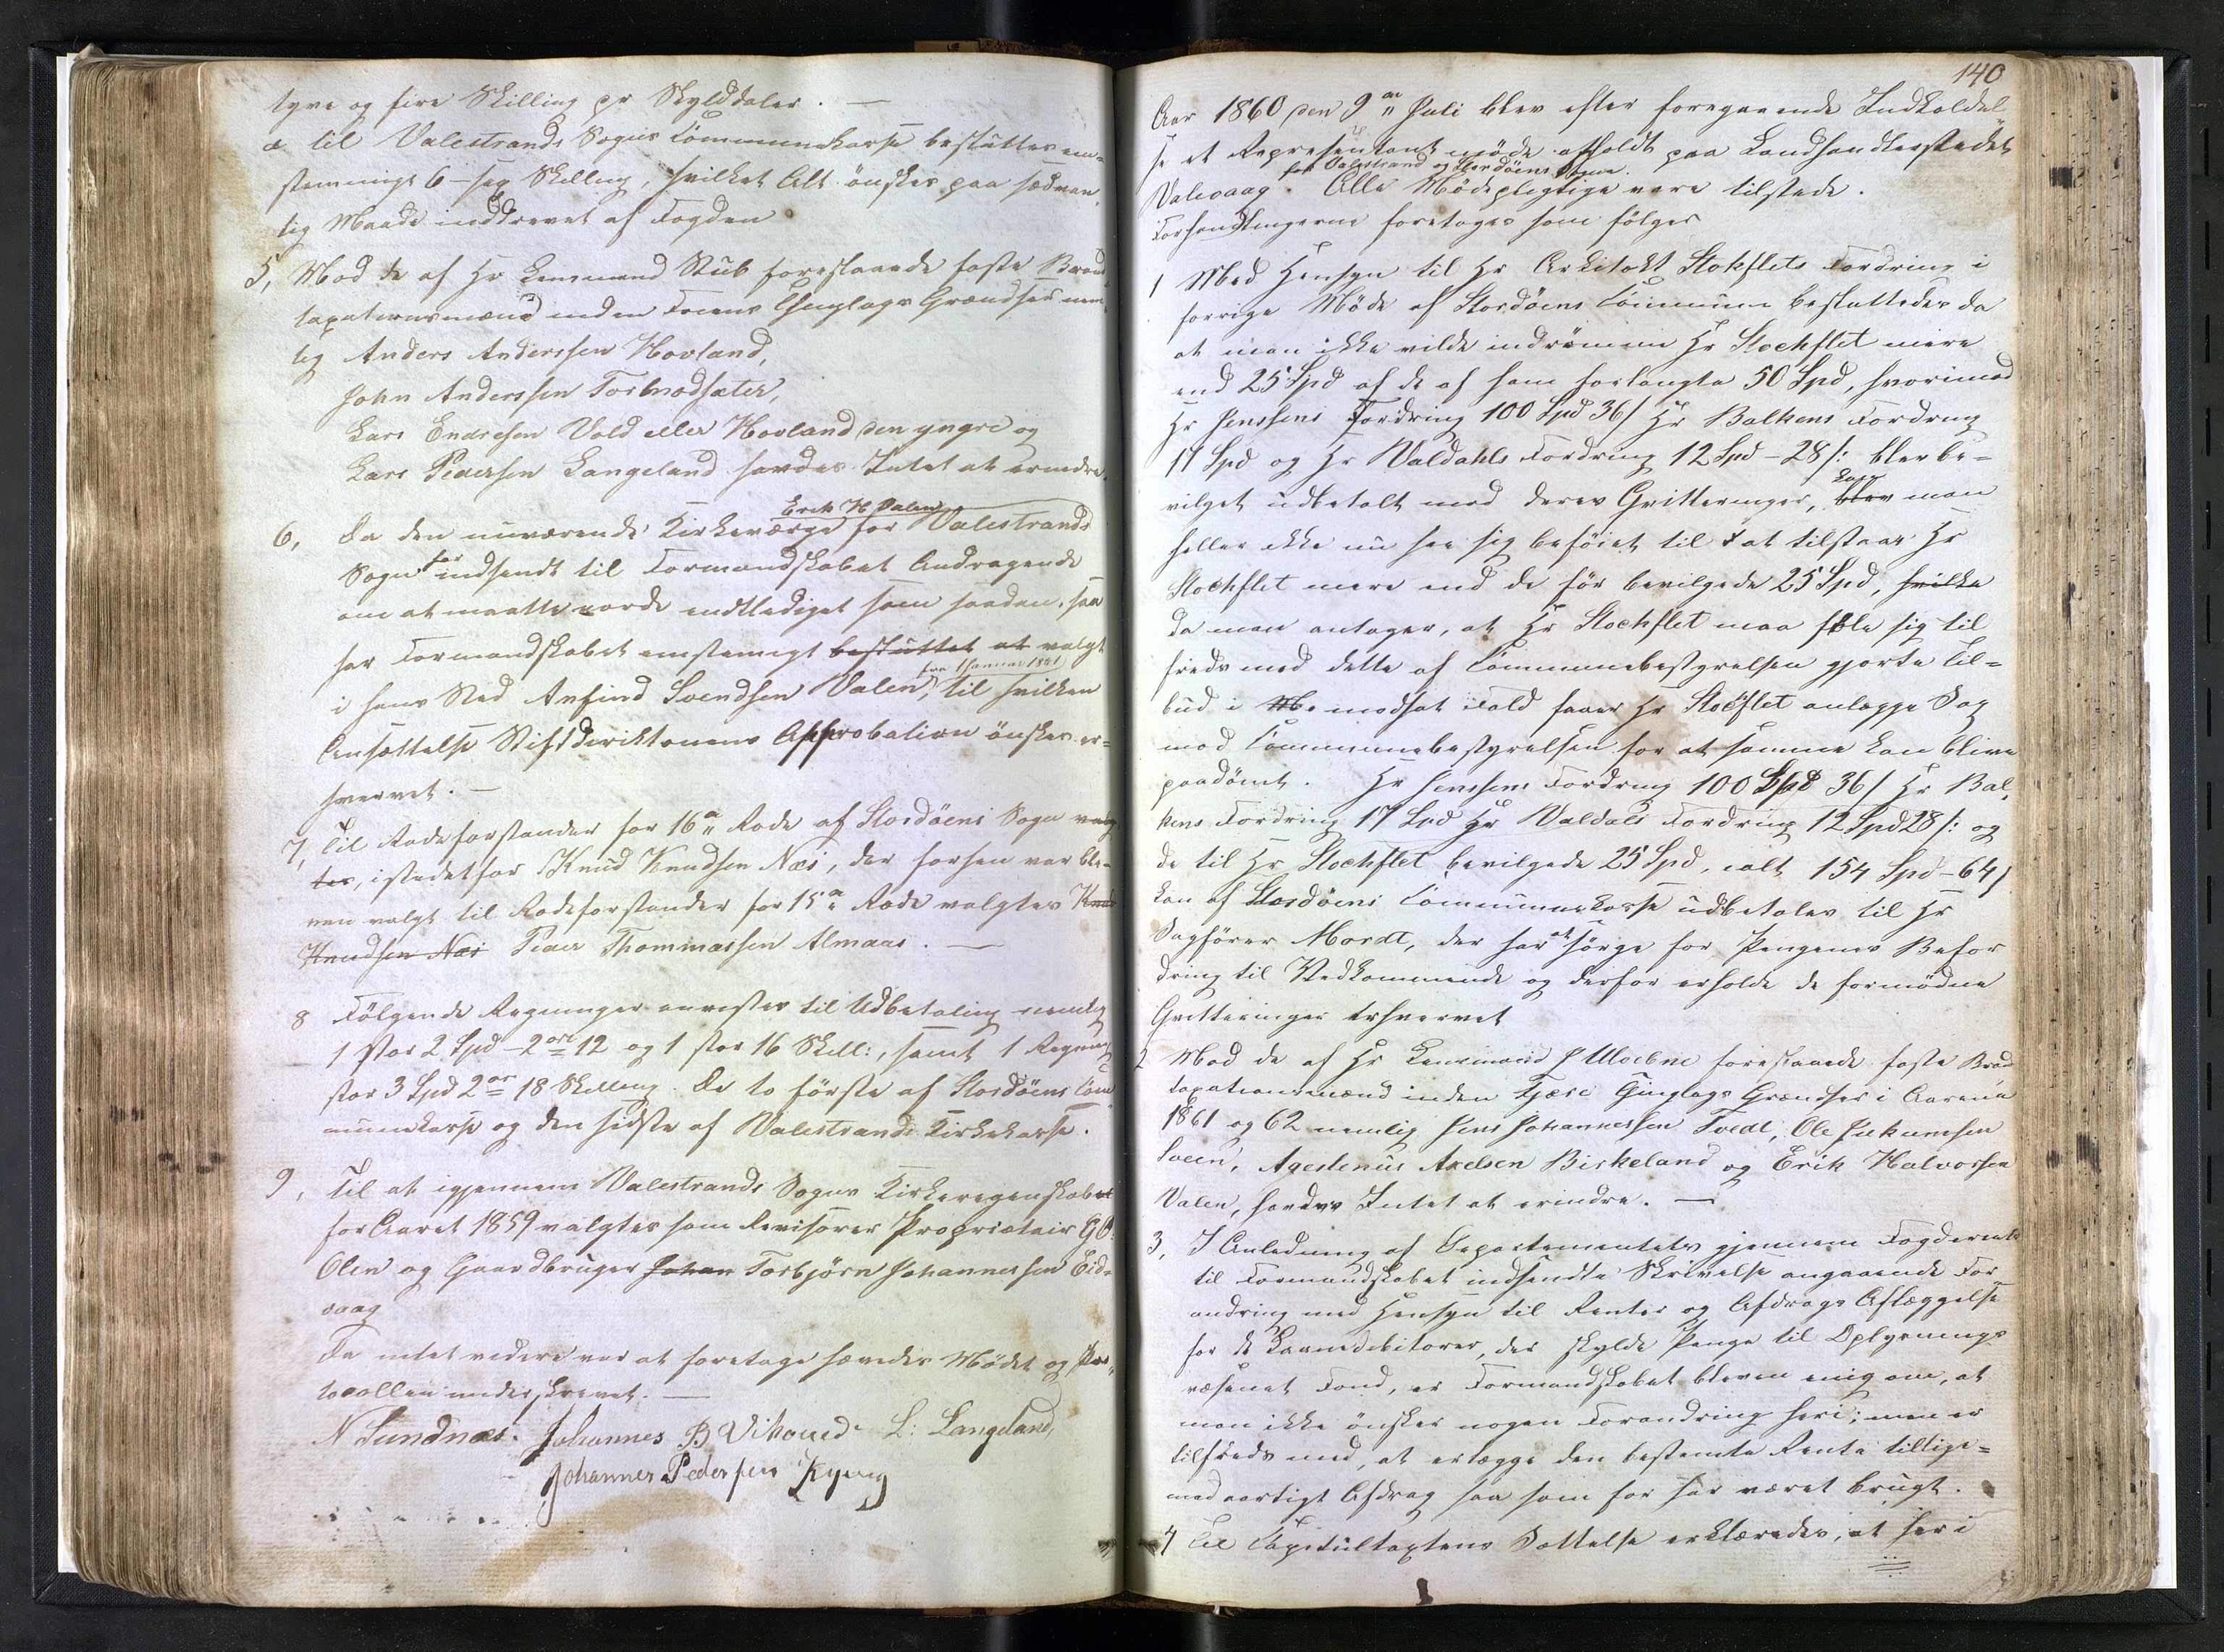 tyve og fire Skilling pr Skylddaler. —
æ til Valestrands Sogns Communekasse besluttes een-
stemmigt 6 – sex Skilling, hvilket Alt ønskes paa sædvan-
lig Maade inddrevet af Fogden
5, Mod de af Hr Lensmand Stub foreslaaede faste Brand-
taxationsmænd inden Foeens Thinglags Grændser nem-
lig Anders Anderssen Hovland,
John Anderssen Torbnodsæter,
Lars Endresen Vold eller Hovland den yngre og
Lars Pedersen Langeland havdes Intet at erindre.
Erik H Valen
6, Da den nuværende Kirkeværge for Valestrands
Sogn har indsendt til Formandskabet Andragende
om at maatte vorde entlediget som saadan, saa
har Formandskabet eenstemigt besluttet at valgt
fra 1 Januar 1861
i hans Sted Anfind Svendsen Valen, til hvilken
Ansættelse Stiftsdirektionens Approbation ønskes er-
hvervet. —
7, Til Rodeforstander for 16de Rode af Stordøens Sogn valg
tes, istedetfor Knud Knudsen Næs, der forhen var ble-
ven valgt til Rodeforstander for 15de Rode valgtes Knud
Knudsen Næs Peder Thommassen Almaas. —
8 Følgende Regninger anvistes til Udbetaling nemlig
1 stor 2 Spd – 2 ort 12 og 1 stor 16 Skill:, samt 1 Regning
stor 3 Spd 2 ort 18 Skilling. De to første af Stordøens Com-
munekasse og den sidste af Valestrands Kirkekasse.
9, Til at igjennem Valestrands Sogns Kirkeregenskaber
for Aaret 1859 valgtes som Revisorer Proprietair G O.
Olen og Gaardbruger Johan Torbjørn Johannessen Eid-
vaag
Da intet videre var at foretage hævedes Mødet og Pro-
tocollen underskrevet. —
N Sundnæs. Johannes B Vikaned L: Langeland,
Johannes Pedersen
140
Aar 1860 den 9de Juli blev efter foregaaende Indkaldel-
se et Representantmøde afholdt paa Landhandlerstedet
for Valestrand og Stordøens Sogne.
Valevaag. Alle Mødepligtige vare tilstede.
Forhandlingerne foretoges som følger
1 Med Hensyn til Hr Arkitekt Stokflets Fordring i
forrige Møde af Stordøens Commune besluttedes da
at man ikke vilde indrømme Hr Stockflet mere
end 25 Spd af de af ham forlangte 50 Spd, hvorimod
Hr Jenssens Fordring 100 Spd 36 s Hr Balkens Fordring
17 Spd og Hr Valdahls Fordring 12 Spd – 28 s: blev be-
vilget udbetalt mod deres Qvitteringer, blev man
heller ikke nu see sig beføiet til at tilstaae Hr
Stockflet mere end de før bevilgede 25 Spd, hvilke
da man antager, at Hr Stockflet maa føle sig til
freds med dette af Communebestyrelsen gjorte Til-
bud i modsat Fald faaer Hr Stocflet anlægge Sag
mod Communebestyrelsen for at samme kan blive
paadømt. Hr Jenssens Fordring 100 Spd 36 s Hr Bal-
kens Fordring 17 Spd Hr Valdals Fordring 12 Spd 28 s: og
de til Hr Stockflet bevilgede 25 Spd, ialt 154 Spd – 64 s
kan af Stordøens Communekasse udbetales til Hr
Sagfører Mordt, der har at sørge for Pengenes Befor
dring til Vedkommende og derfor erholde de fornødne
Qvitteringer erhvervet
2 Mod de af Hr Lensmand foreslaaede faste Brand
taxationsmænd inden Fjære Thinglags Grændser i Aarene
1861 og 62 nemlig Jens Johannessen Tvedt, Ole
Sveen, Agestenus Axelsen Birkeland og Erik Halvorsen
Valen, havdes Intet at erindre. —
3, I Anledning af Departementets gjennem Fogderiet
til Formandskabet indsendte Skrivelse angaaende For-
andring med Hensyn til Renter og Afdrags Aflæggelse
for de Laanedebitorer, der skylde Penge til Oplysnings-
væsenet Fond, er Formandskabet bleven enig om, at
man ikke ønsker nogen Forandring heri; men er
tilfreds med, at erlægge den bestemte Rente tillige-
med aarligt Afdrag saa som før har været brugt.
4 Til Capitultaxtens Sættelse erklæredes, at her i